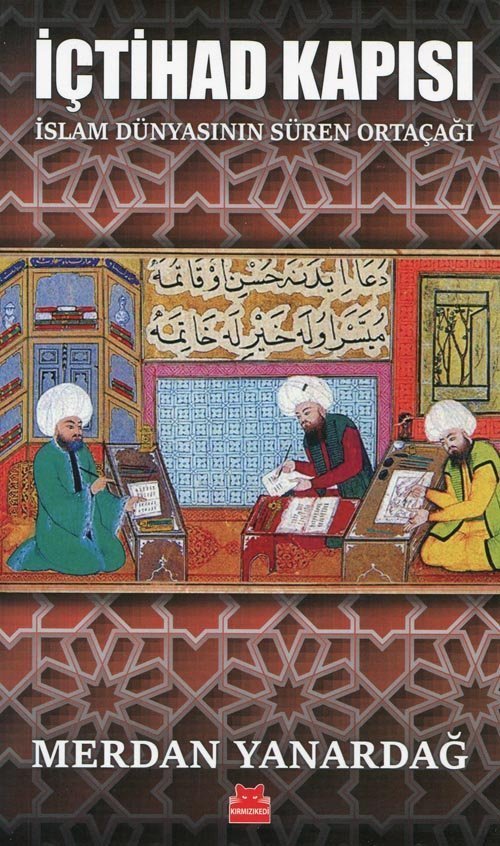 İÇTİHAD KAPISI
İSLAM DÜNYASININ SÜREN ORTAÇAĞI
دعا ايدنه حسن اوقاتمه
ميسر اوله خير له خاتمه
MERDAN YANARDAĞ
KIRMIZIKEDİ